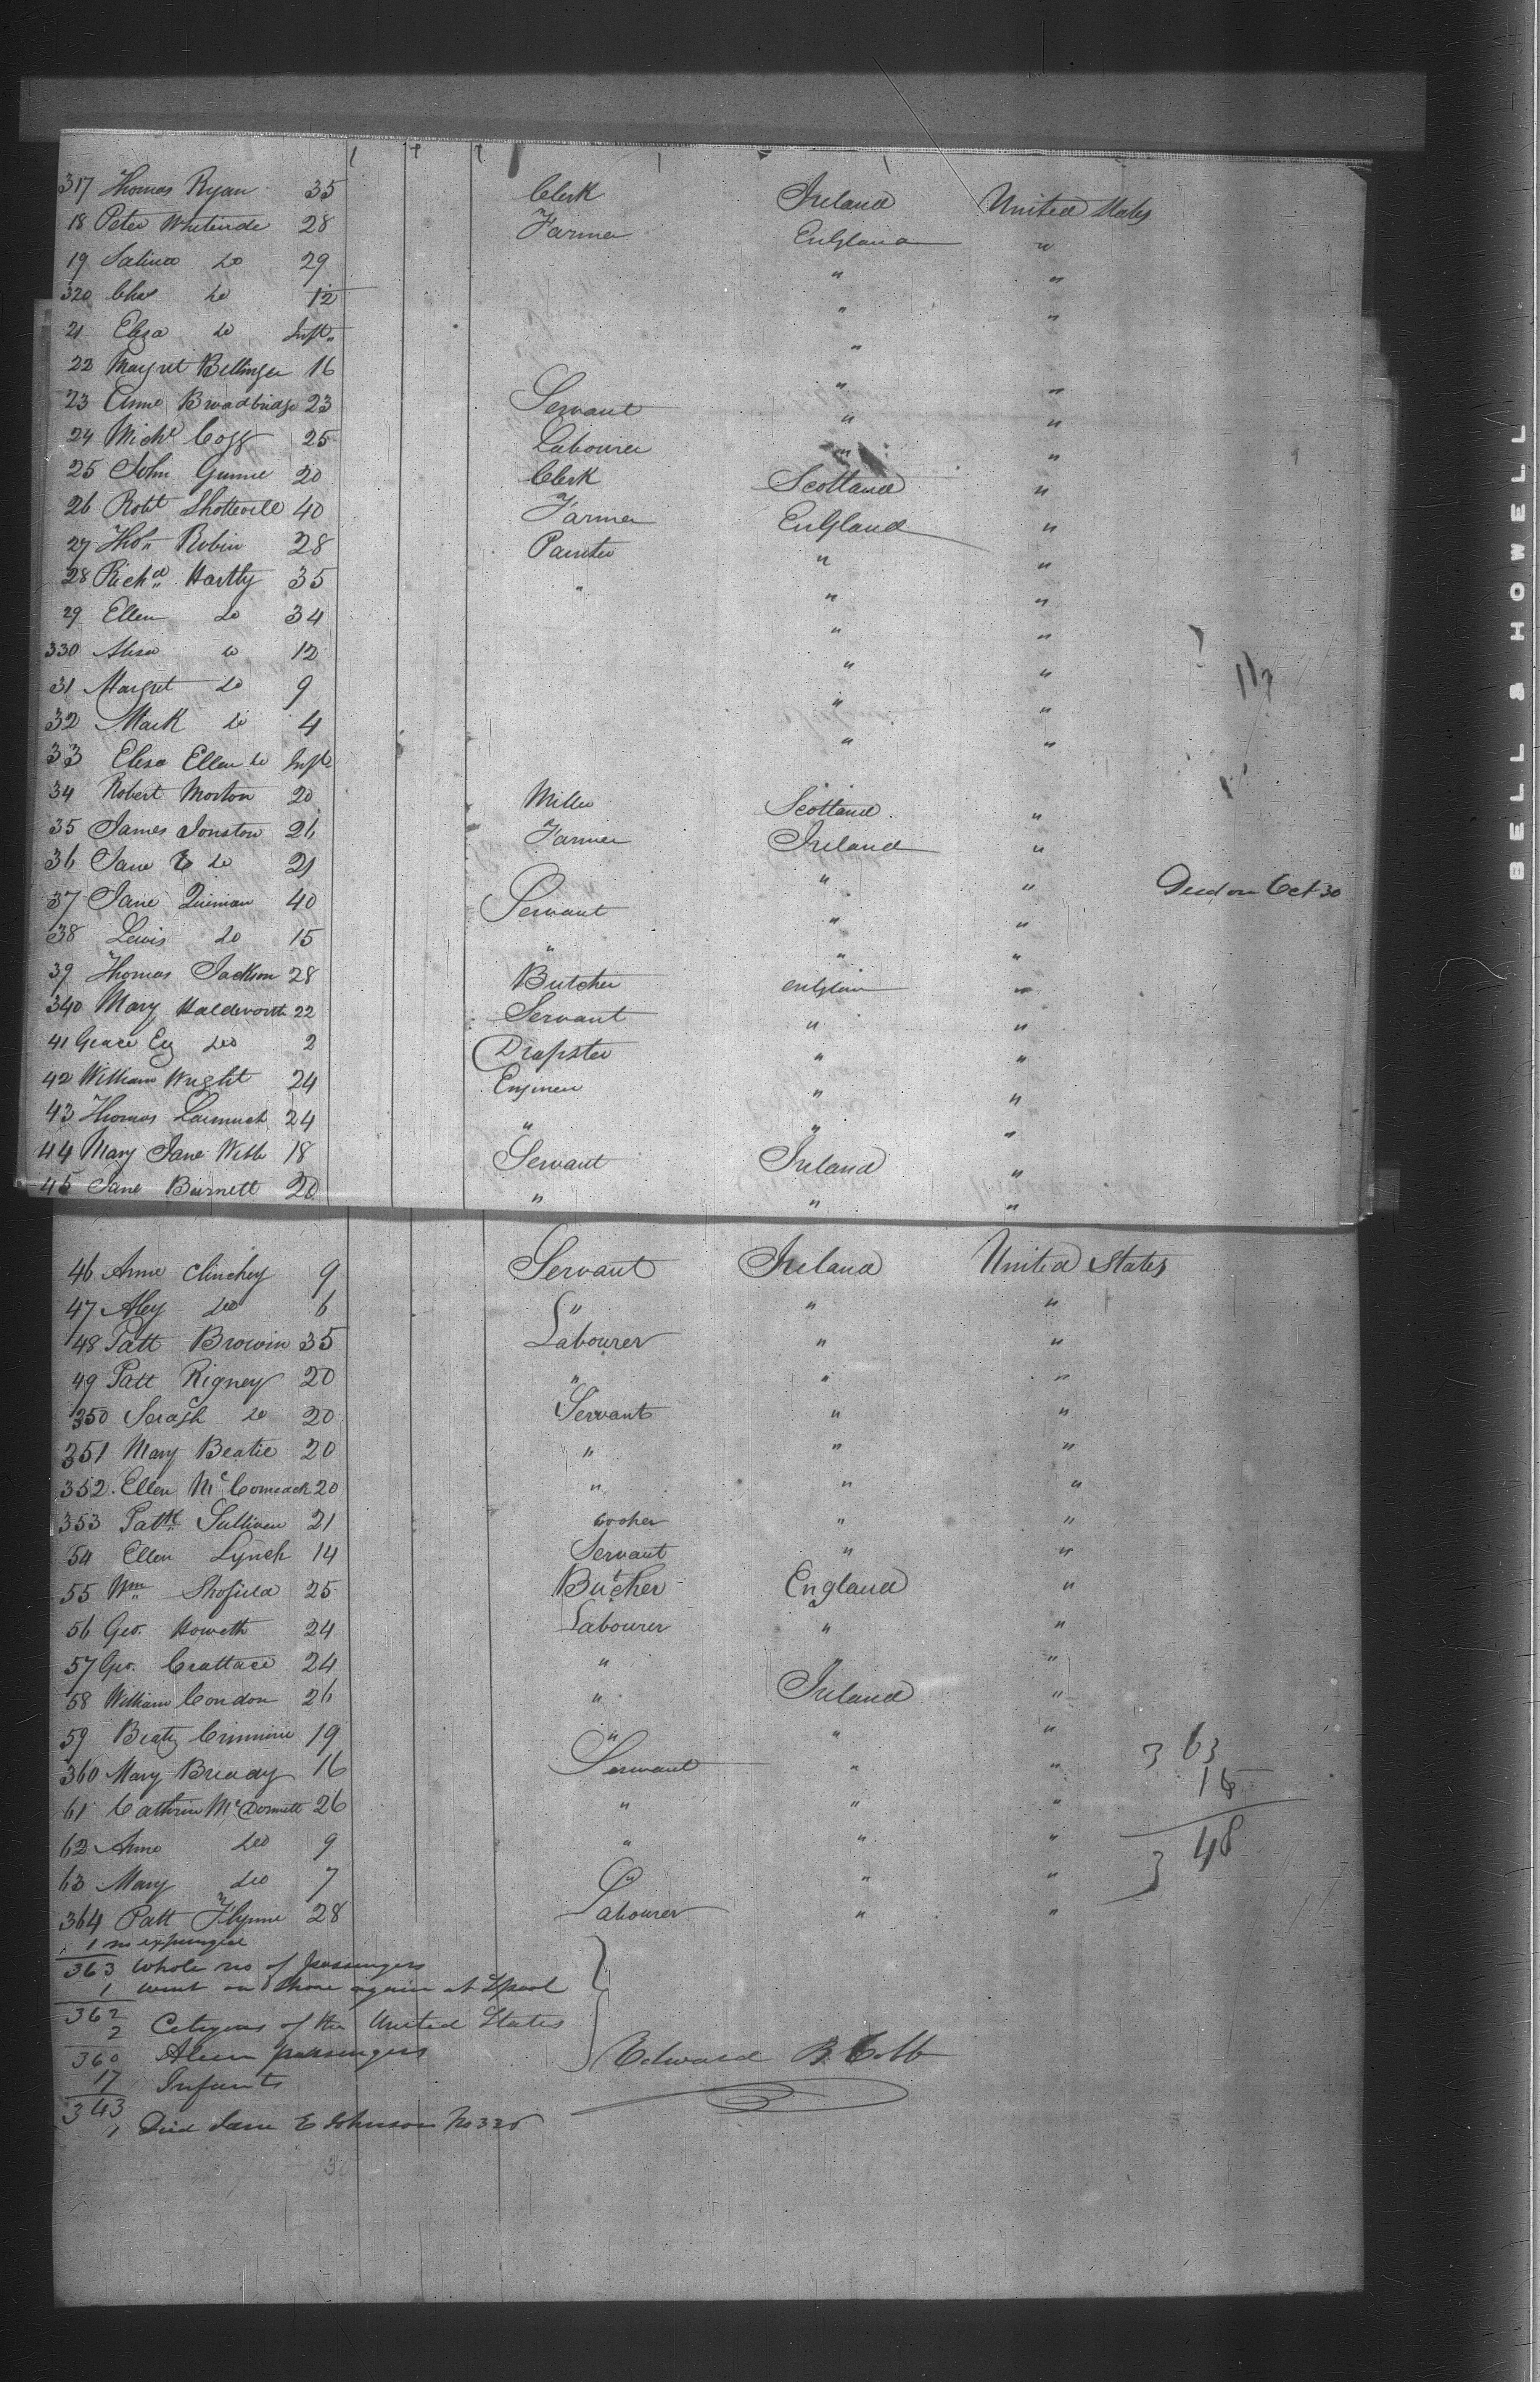 317 Thomas Ryan 35 Clerk Ireland United States
18 Peter Whiteside 28 Farmer England "
19 Salina do 29 " "
320 Chas do 12 " "
21 Eliza do Inft "
22 Margret Bellinger 16 " "
23 Anne Broadbridge 23 Servant " "
24 Michl Cogg 25 Labourer " "
25 John Gunne 20 Clerk Scotland "
26 Robt 40 Farmer England "
27 Thos Robin 28 Painter " "
28 Richd Hartly 35 " " "
29 Ellen do 34 " "
330 do 12 " "
31 Margret do 9 " "
32 Mark do 4 " "
33 Eliza Ellen do Inft
34 Robert Morton 20 Miller Scotland "
35 James Jonston 26 Farmer Ireland "
36 Jane E do 21 " " Died on Oct 30
37 Jane 40 Servant " "
38 Lewis do 15 " " "
39 Thomas Jackson 28 Butcher England "
340 Mary Haldsworth 22 Servant " "
41 Grace do 2 Drapster " "
42 William Wright 24 Enjineer " "
43 Thomas 24 " " "
44 Mary Jane Webb 18 Servant Ireland "
45 Jane Burnett 20 " " "
46 Anne Clinchey 9 Servant Ireland United States
47 Aley do 6 " " "
48 Patt Browin 35 Labourer " "
49 Patt Rigney 20 " " "
350 Seragh do 20 Servant " "
351 Mary Beatie 20 " " "
352 Ellen McComcack 20 " " "
353 Pattk Sullivan 21 " "
54 Ellen Lynch 14 Servant " "
55 Wm Shofield 25 Butcher England "
56 Geo. Howeth 24 Labourer " "
57 Geo. 24 " " "
58 William Condon 26 " Ireland "
59 19 " " "
360 Mary Bready 16 Servant " "
61 Cathrin McDonnell 26 " " "
62 Anne do 9 " " "
63 Mary do 7 " " "
364 Patt Flynne 28 Labourer " "
363
15
348
1 no expunged
363 Whole no of passengers
1 went on shore again at Lpool
362
2 Citizens of the United States
360 Alien passengers
17 Infants
343
1 Died Jane E Johnson No 336
Edward B Cobb
BELL & HOWELL